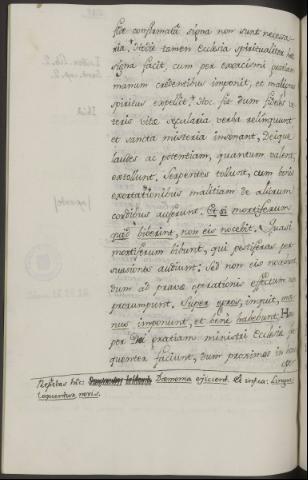 fide confirmatâ signa non sunt necessa-
ria. Utitur tamen Ecclesia spiritualiter hæc
signa facit, cum per exorcismi gratiam
manum credentibus imponit, et malignos
spiritus expellit. Hoc fit dum fideles ve-
teris vitæ sæcularia verba relinquunt
et sancta misteria insonant, Deique
laudes ac potentiam, quantum valent,
extollunt. Serpentes tollunt, cum bonis
exortationibus malitiam de aliorum
cordibus auferunt. Et si mortiferum
quid biberint, non eis nocebit. Quasi
mortiferum bibunt, qui pestiferas per
suasiones audiunt: Sed non eis nocent,
dum ad pravæ operationis effectum non
prorumpunt. Super egros, inquit, ma-
nus imponunt, et bene habebunt. Hoc
per Dei gratiam ministri Ecclesiæ fre
quenter faciunt, dum proximos in
Dæmonia ejicient. Et infra: Linguis
loquentur novis.